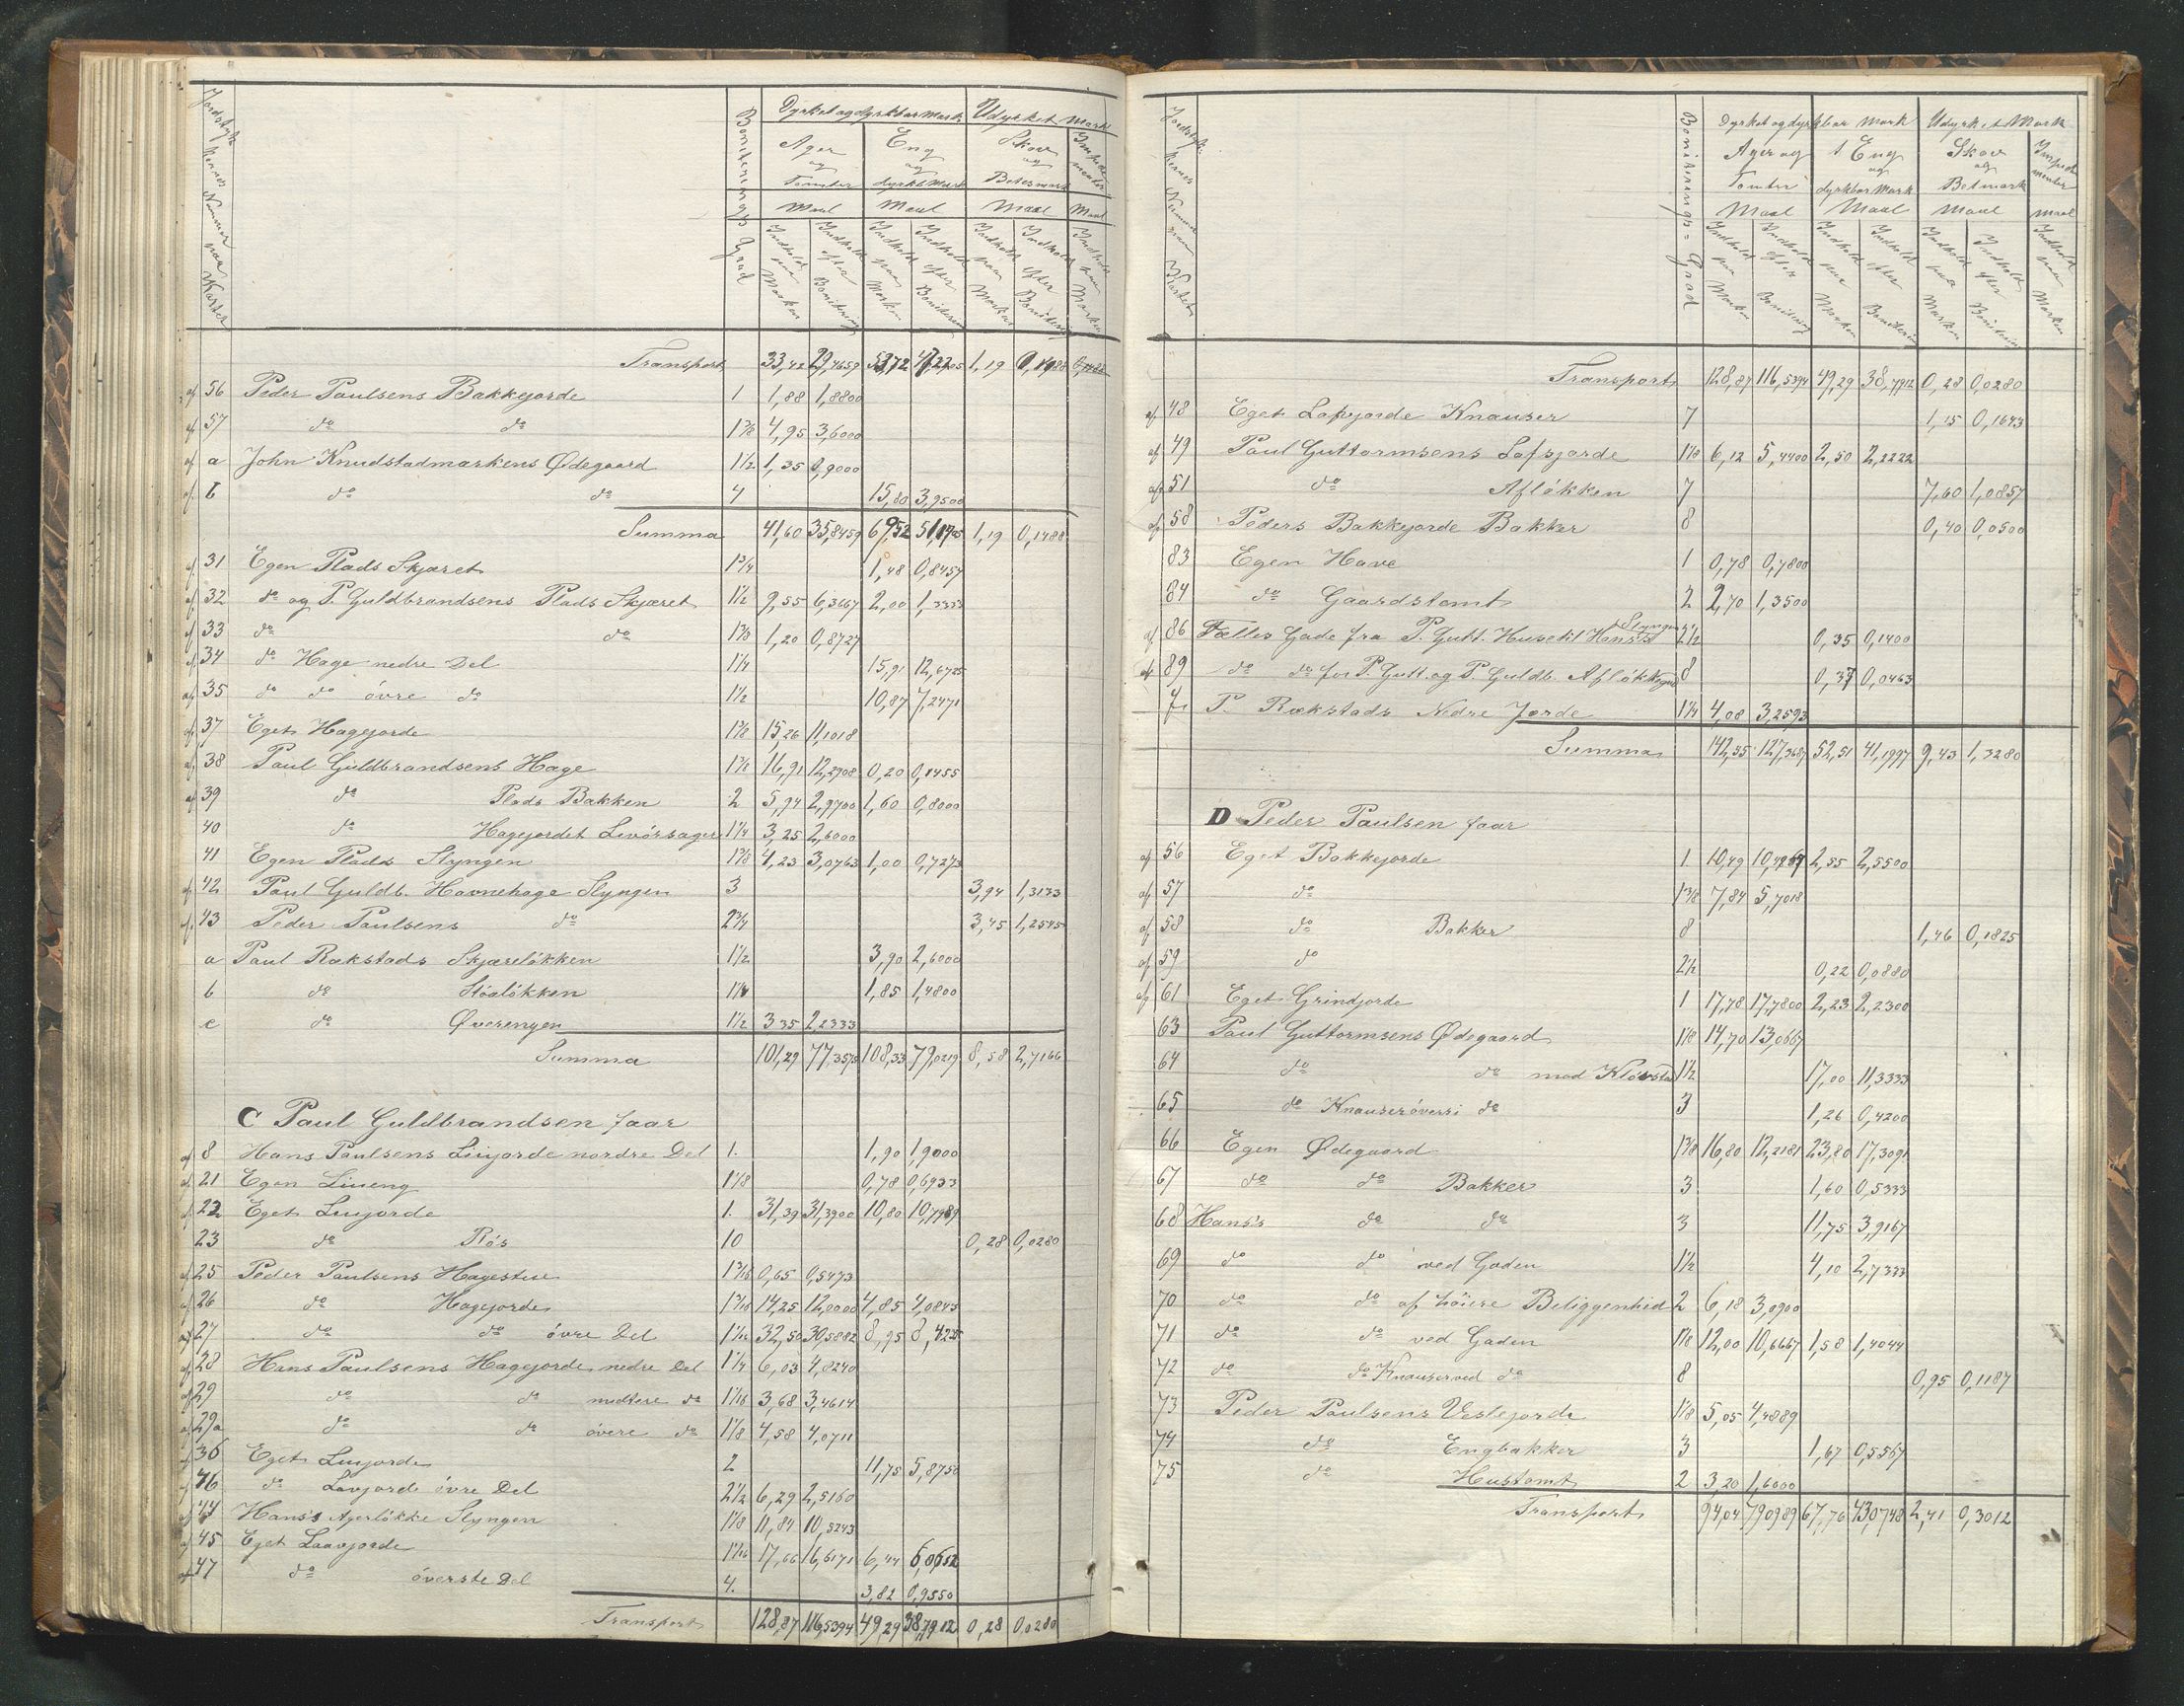 Jordstykkernes Nummer paa Kartet | Boniterings Grad | Dyrket og dyrkbar Mark | Udyrket Mark
Ager og Tomter | Eng og dyrkb. Mark | Skov og Betesmark | Impedimenter
Maal | Maal | Maal | Maal
Indhold paa Marken | Indhold efter Bonitering | Indhold paa Marken | Indhold efter Bonitering | Indhold paa Marken | Indhold efter Bonitering | Indhold paa Marken
Transport 33,42 29,4659 53,72 47,2205 1,19 0,1488
af 56 Peder Paulsens Bakkejorde 1 1,88 1,8800
af 57 do do 1 3/8 4,95 3,6000
af a John Knudstadmarkens Ødegaard 1 1/2 1,35 0,9000
af b do do 4 15,80 3,9500
Summa 41,60 35,8459 69,52 51,1705 1,19 0,1488
af 31 Egen Plads Skjæret 1 3/4 1,48 0,8457
af 32 do og P. Guldbrandsens Plads Skjæret 1 1/2 9,55 6,3667 2,00 1,3333
af 33 do do 1 3/8 1,20 0,8727
af 34 do Hage nedre Del 1 1/4 15,91 12,6725
af 35 do do övre do 1 1/2 10,87 7,2471
af 37 Eget Hagejorde 1 3/8 15,26 11,1018
af 38 Paul Guldbrandsens Hage 1 3/8 16,91 12,2908 0,20 0,1455
af 39 do Plads Bakken 2 5,94 2,9700 1,60 0,8000
40 do Hagejordet Levörsager 1 1/4 3,25 2,6000
41 Egen Plads Slyngen 1 3/8 4,23 3,0763 1,00 0,7273
af 42 Paul Guldb. Havnehage Slyngen 3 3,94 1,3133
af 43 Peder Paulsens do 2 3/4 3,45 1,2545
a Paul Rækstads Skjæreløkken 1 1/2 3,90 2,6000
b do Støaløkken 1 1/4 1,85 1,4800
c do Øverengen 1 1/2 3,35 2,2333
Summa 101,29 77,3575 108,33 79,0219 8,58 2,7166
C Paul Guldbrandsen faar
af 8 Hans Paulsens Liujorde nordre Del 1. 1,90 1,9000
af 21 Egen Liueng 1 1/8 0,78 0,6933
af 22 Eget Liujorde 1. 31,39 31,3900 10,80 10,7989
23 do Rös 10 0,28 0,0280
af 25 Peder Paulsens Hagestue 1 3/16 0,65 0,5473
af 26 do Hagejorde 1 3/16 14,25 12,0000 4,85 4,0843
af 27 do do övre Del 1 1/16 32,50 30,5882 8,95 8,4235
af 28 Hans Paulsens Hagejorde nedre Del 1 1/4 6,03 4,8240
af 29 do do midtere do 1 1/16 3,68 3,4614
af 29a do do övere do 1 1/8 4,58 4,0711
af 36 Eget Liujorde 2 11,75 5,8750
af 46 do Lavjorde övre Del 2 1/2 6,29 2,5160
af 44 Hans's Agerløkke Slyngen 1 1/8 11,84 10,5243
af 45 Eget Laavjorde 1 1/16 17,66 16,6171 6,44 6,0612
af 47 do överste Del 4. 3,82 0,9550
Transport 128,87 116,5394 49,29 38,7912 0,28 0,0280
Jordstykkernes Nummer paa Kartet | Boniterings-Grad | Dyrket og dyrkbar Mark | Udyrket Mark
Ager og Tomter | Eng og dyrkbar Mark | Skov og Betmark | Impedimenter
Maal | Maal | Maal | Maal
Indhold paa Marken | Indhold efter Bonitering | Indhold paa Marken | Indhold efter Bonitering | Indhold paa Marken | Indhold efter Bonitering | Indhold paa Marken
Transport 128,87 116,5394 49,29 38,7912 0,28 0,0280
af 48 Eget Lafsjorde Knauser 7 1,15 0,1643
af 49 Paul Guttormsens Lafsjorde 1 1/8 6,12 5,4400 2,50 2,2222
af 51 do Afløkken 7 7,60 1,0857
af 58 Peders Bakkejorde Bakker 8 0,40 0,0500
83 Egen Have 1 0,78 0,7800
84 do Gaardstomt 2 2,70 1,3500
af 86 Fælles Gade fra P. Gutt. Huse til Hans's Slyngen 2 1/2 0,35 0,1400
af 89 do do for P. Gutt. og P. Guldb. Afløkken 8 0,37 0,0463
f. P. Rækstads Nedre Jorde 1 1/4 4,08 3,2593
Summa 142,55 127,3687 52,51 41,1997 9,43 1,3280
D Peder Paulsen faar
af 56 Eget Bakkejorde 1. 10,49 10,4867 2,55 2,5500
af 57 do 1 3/8 7,84 5,7018
af 58 do Bakker 8 1,46 0,1825
af 59 do 2 1/2 0,22 0,0880
af 61 Eget Grindjorde 1 17,78 17,7800 2,23 2,2300
63 Paul Guttormsens Ødegaard 1 1/8 14,70 13,0667
64 do do mod Kløvstad 1 1/2 17,00 11,3333
65 do Knauser överst i do 3 1,26 0,4200
66 Egen Ødegaard 1 3/8 16,80 12,2181 23,80 17,3091
67 do do Bakker 3 1,60 0,5333
68 Hans's do do 3 11,75 3,9167
69 do do ved Gaden 1 1/2 4,10 2,7333
70 do do af höiere Beliggenhed 2 6,18 3,0900
71 do do ved Gaden 1 1/8 12,00 10,6667 1,58 1,4044
72 do do Knauser ved do 8 0,95 0,1187
73 Peder Paulsens Veslejorde 1 1/8 5,05 4,4889
74 do Engbakker 3 1,67 0,5567
75 do Hustomt 2 3,20 1,6000
Transport 94,04 79,0989 67,76 43,0748 2,41 0,3012